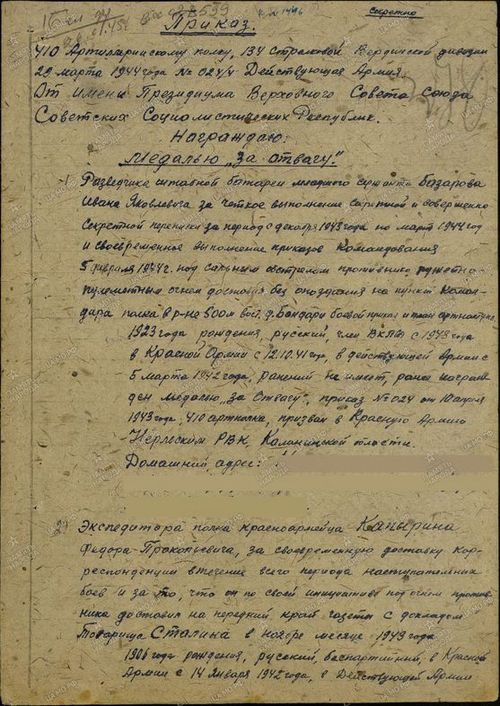 Секретно
Приказ.
410 Артиллерийскому полку, 134 Стрелковой Вердинской дивизии
29 марта 1944 года № 024/н Действующая Армия.
От имени Президиума Верховного Совета Союза
Советских Социалистических Республик.
Награждаю:
Медалью "За отвагу".
1) Разведчика штабной батареи младшего сержанта Базарова
Ивана Яковлевича за четкое выполнение секретной и совершенно
секретной переписки за период с декабря 1943 года по март 1944 год
и своевременное выполнение приказов Командования
5 февраля 1944г. под сильным обстрелом противника ружейно
пулеметным огнем доставил без опоздания на пункт коман-
дира полка в р-не 800м вост. д. Бондари боевой приказ и
1923 года рождения, русский, член ВКПб с 1943 года
в Красной Армии с 12.10.41 год, в действующей армии с
5 марта 1942 года, ранений не имеет, ранее награж-
ден медалью "За Отвагу", приказ № 024 от 10 апреля
1943 года, 410 артполка, призван в Красную Армию
РВК Калининской области.
Домашний адрес:
2) Экспедитора полка красноармейца Капырина
Федора Прокопьевича, за своевременную доставку кор-
респонденции в течение всего периода наступательных
боев и за то, что он по своей инициативе под огнем против-
ника доставил на передний край газеты с докладом
Товарища Сталина в ноябре месяце 1943 года
1906 года рождения, русский, беспартийный, в Красной
Армии с 14 января 1942 года, в Действующей Армии